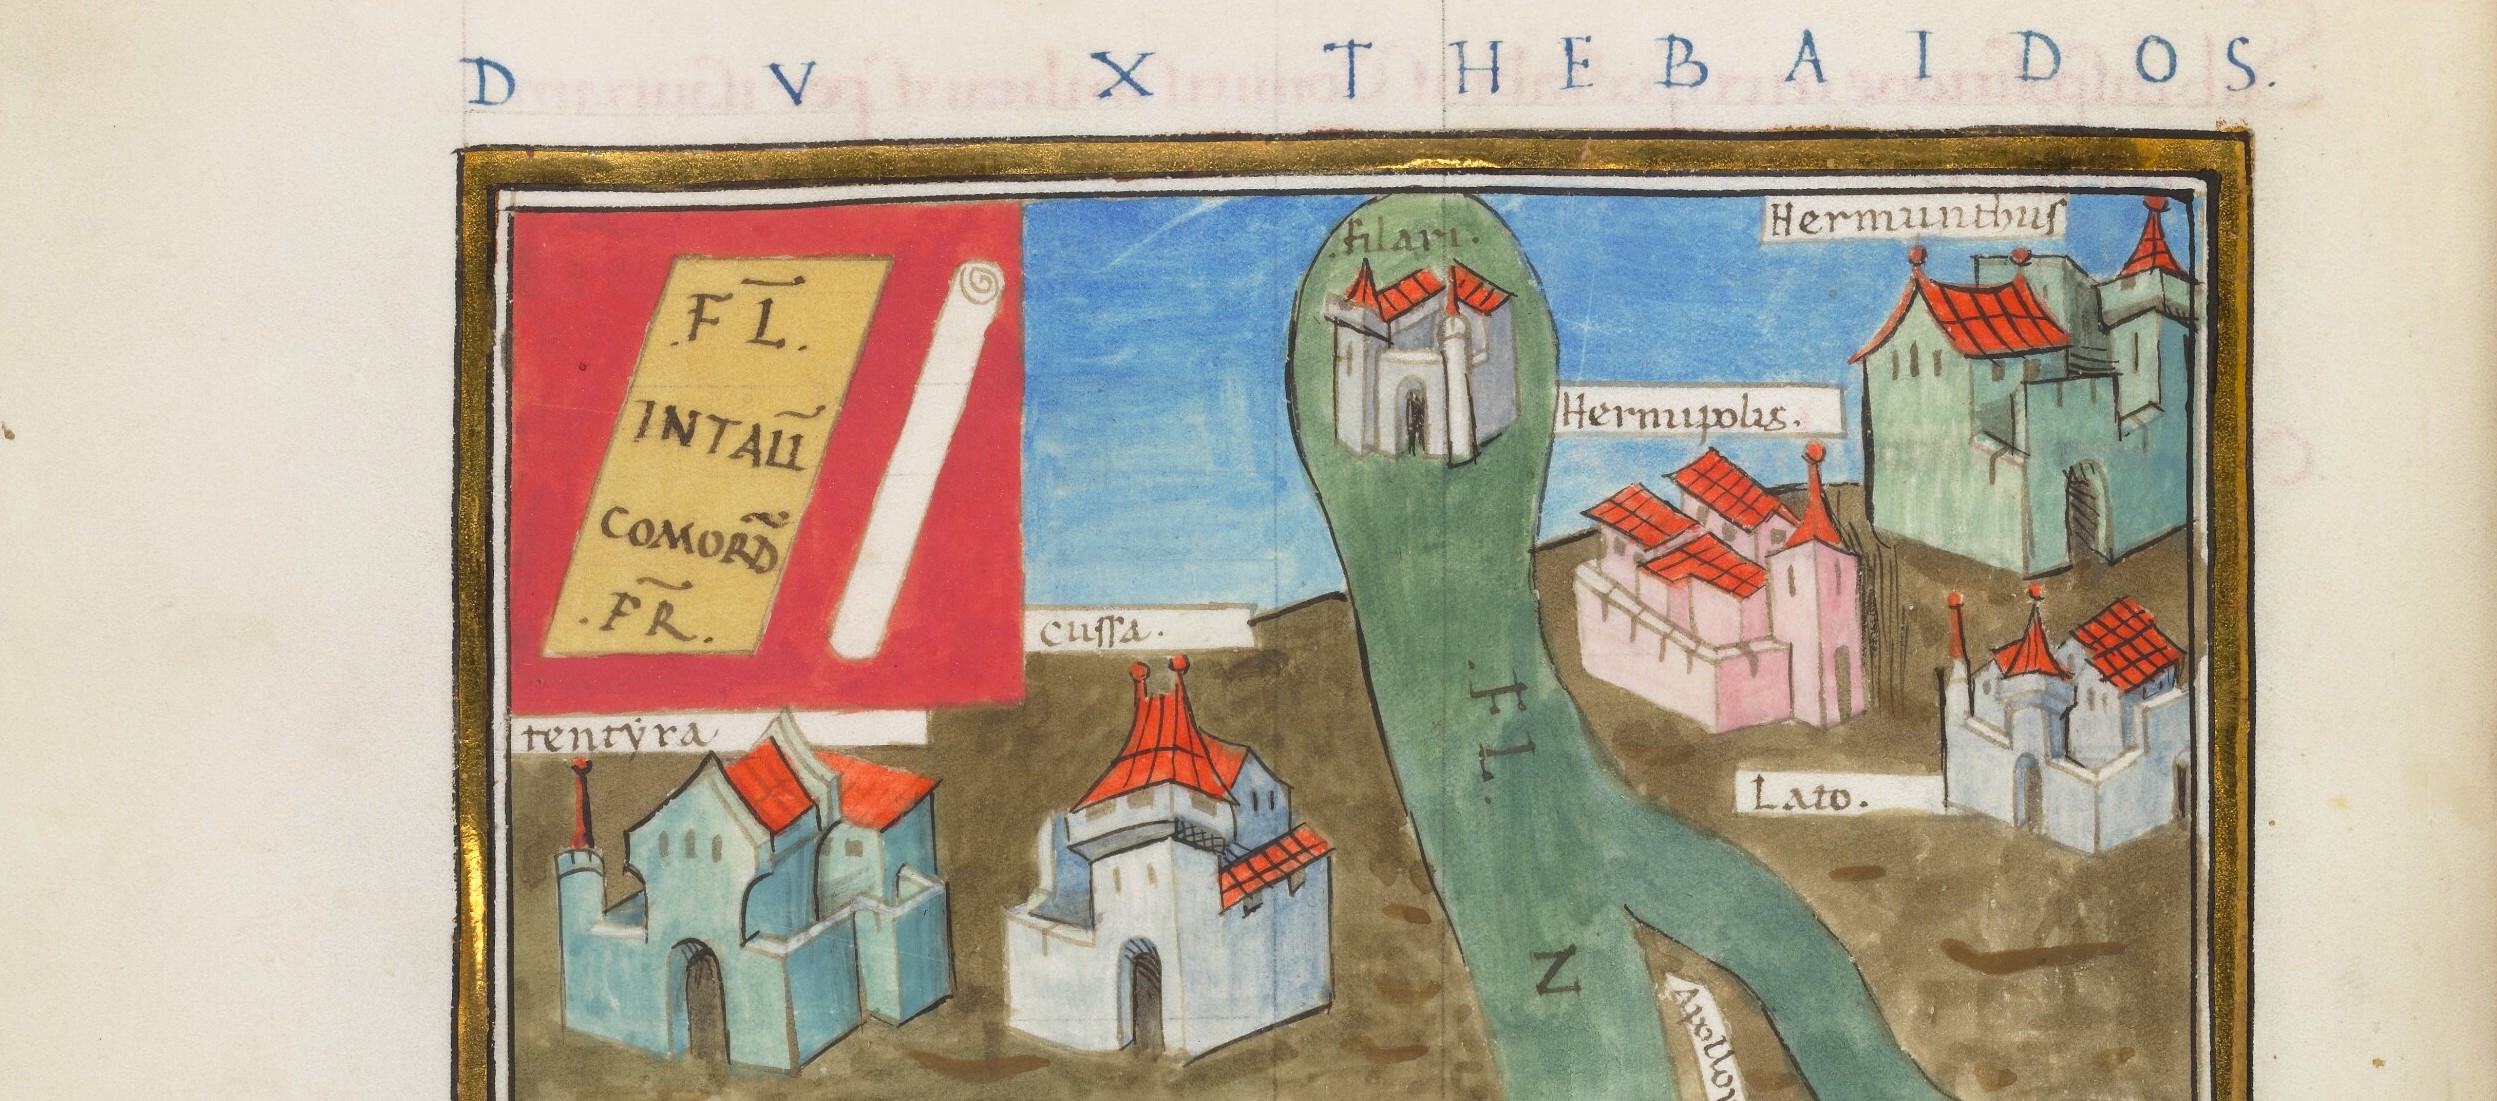 DVX THEBAIDOS.
.F L̄.
INTALL̃
COMORD̃
.P̄R.
.filari.
Hermunthus
Hermipolis.
cussa.
tentÿra
Lato.
.FL.
N